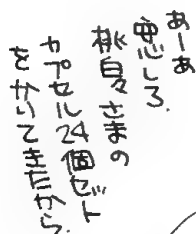 あーあ
悪しろ、
桃白々さまの
カプセル24個セット
をかいてきたから、